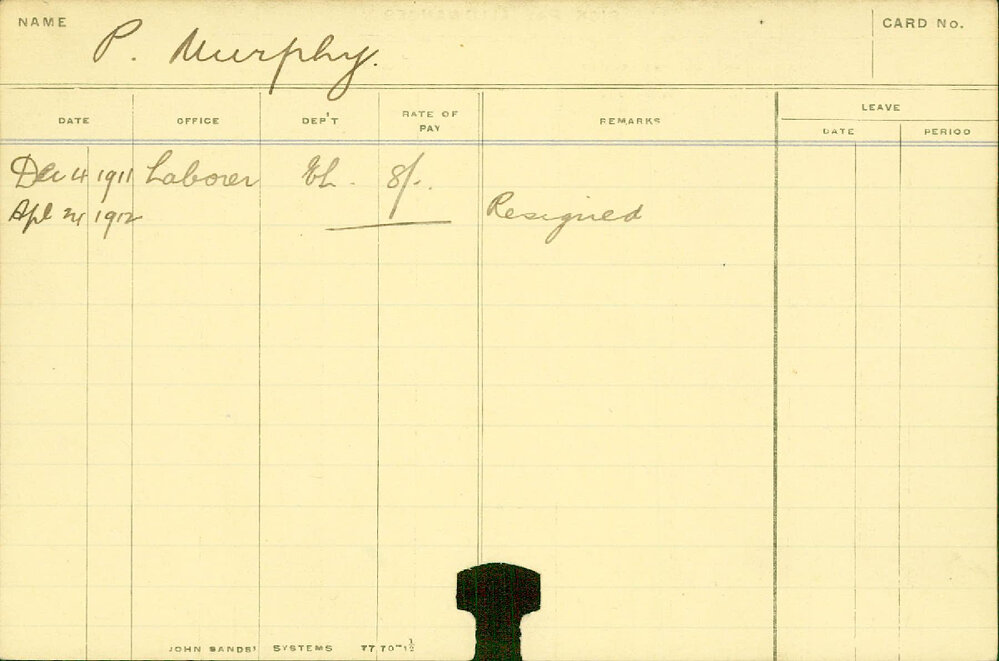 NAME P. Murphy. CARD No.
DATE OFFICE DEP'T RATE OF PAY REMARKS LEAVE
DATE PERIOD
Dec 4 1911 Laborer 8/-.
Apl 1912 Resigned
JOHN SANDS' SYSTEMS